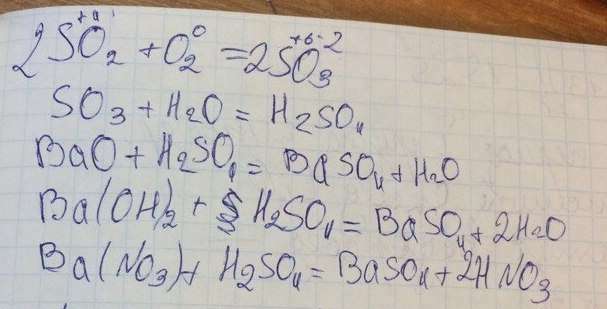 2SO₂ + O₂⁰ = 2SO₃
SO₃ + H₂O = H₂SO₄
BaO + H₂SO₄ = BaSO₄ + H₂O
Ba(OH)₂ + H₂SO₄ = BaSO₄ + 2H₂O
Ba(NO₃) + H₂SO₄ = BaSO₄ + 2HNO₃